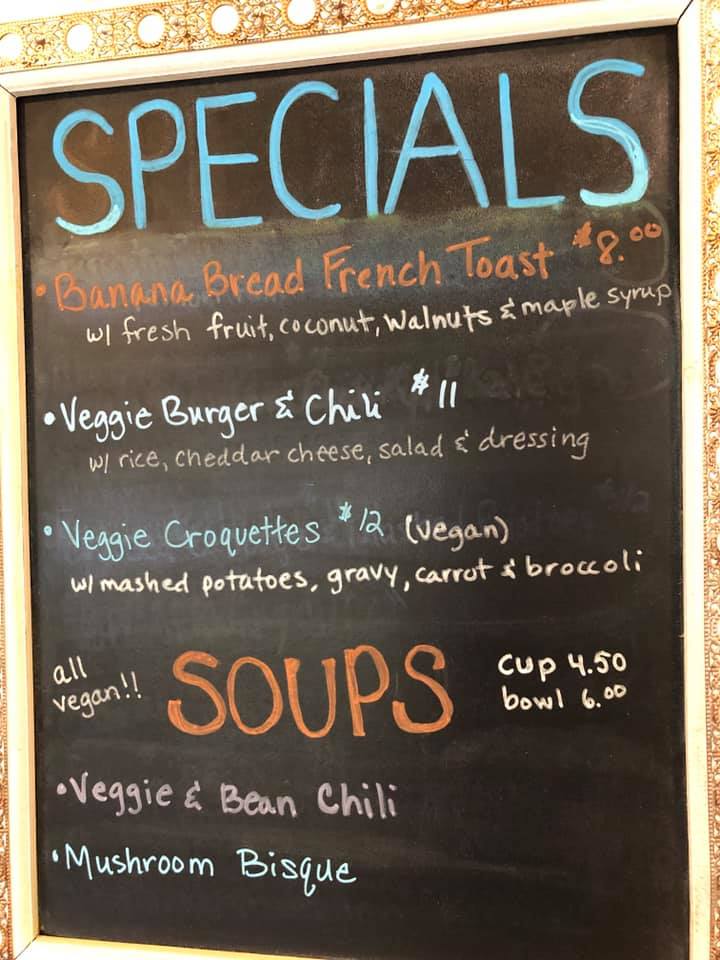 SPECIALS
• Banana Bread French Toast $8.00
w/ fresh fruit, coconut, walnuts & maple syrup
• Veggie Burger & Chili $11
w/ rice, cheddar cheese, salad & dressing
• Veggie Croquettes $12 (vegan)
w/ mashed potatoes, gravy, carrot & broccoli
all vegan!!
SOUPS
cup 4.50
bowl 6.00
• Veggie & Bean Chili
• Mushroom Bisque